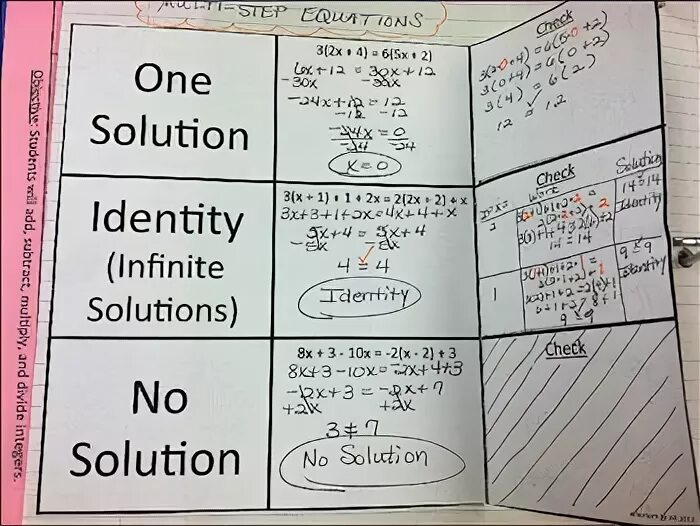 MULTI-STEP EQUATIONS
Objective: Students will add, subtract, multiply, and divide integers.
One
Solution
3(2x + 4) = 6(5x + 2)
6x + 12 = 30x + 12
-30x -30x
-24x + 12 = 12
-12 -12
-24x = 0
-24 -24
x = 0
Check
3(2·0+4) = 6(5·0+2)
3(0+4) = 6(0+2)
3(4) = 6(2)
12 = 12
Identity
(Infinite
Solutions)
3(x + 1) + 1 + 2x = 2(2x + 2) + x
3x+3+1+2x=4x+4+x
5x+4 = 5x+4
-5x -5x
4 = 4
Identity
Check
Work
Solution
2
14 = 14
14 = 14
Identity
1
9 = 9
9 = 9
Identity
No
Solution
8x + 3 - 10x = -2(x - 2) + 3
8x+3-10x = -2x+4+3
-2x+3 = -2x+7
+2x +2x
3 ≠ 7
No Solution
Check